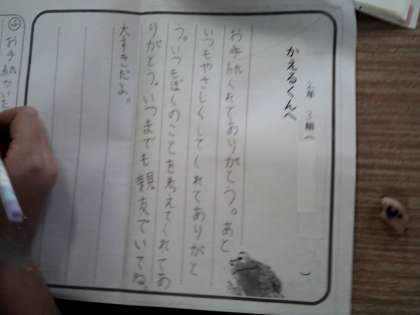 二年 3組(
)
かえるくんへ
お手紙くれてありがとう。あと
いつもやさしくしてくれてありがと
う。いつもぼくのことを考えてくれてあ
りがとう。いつまでも親友でいてね。
大すきだよ。
④お手紙かいた